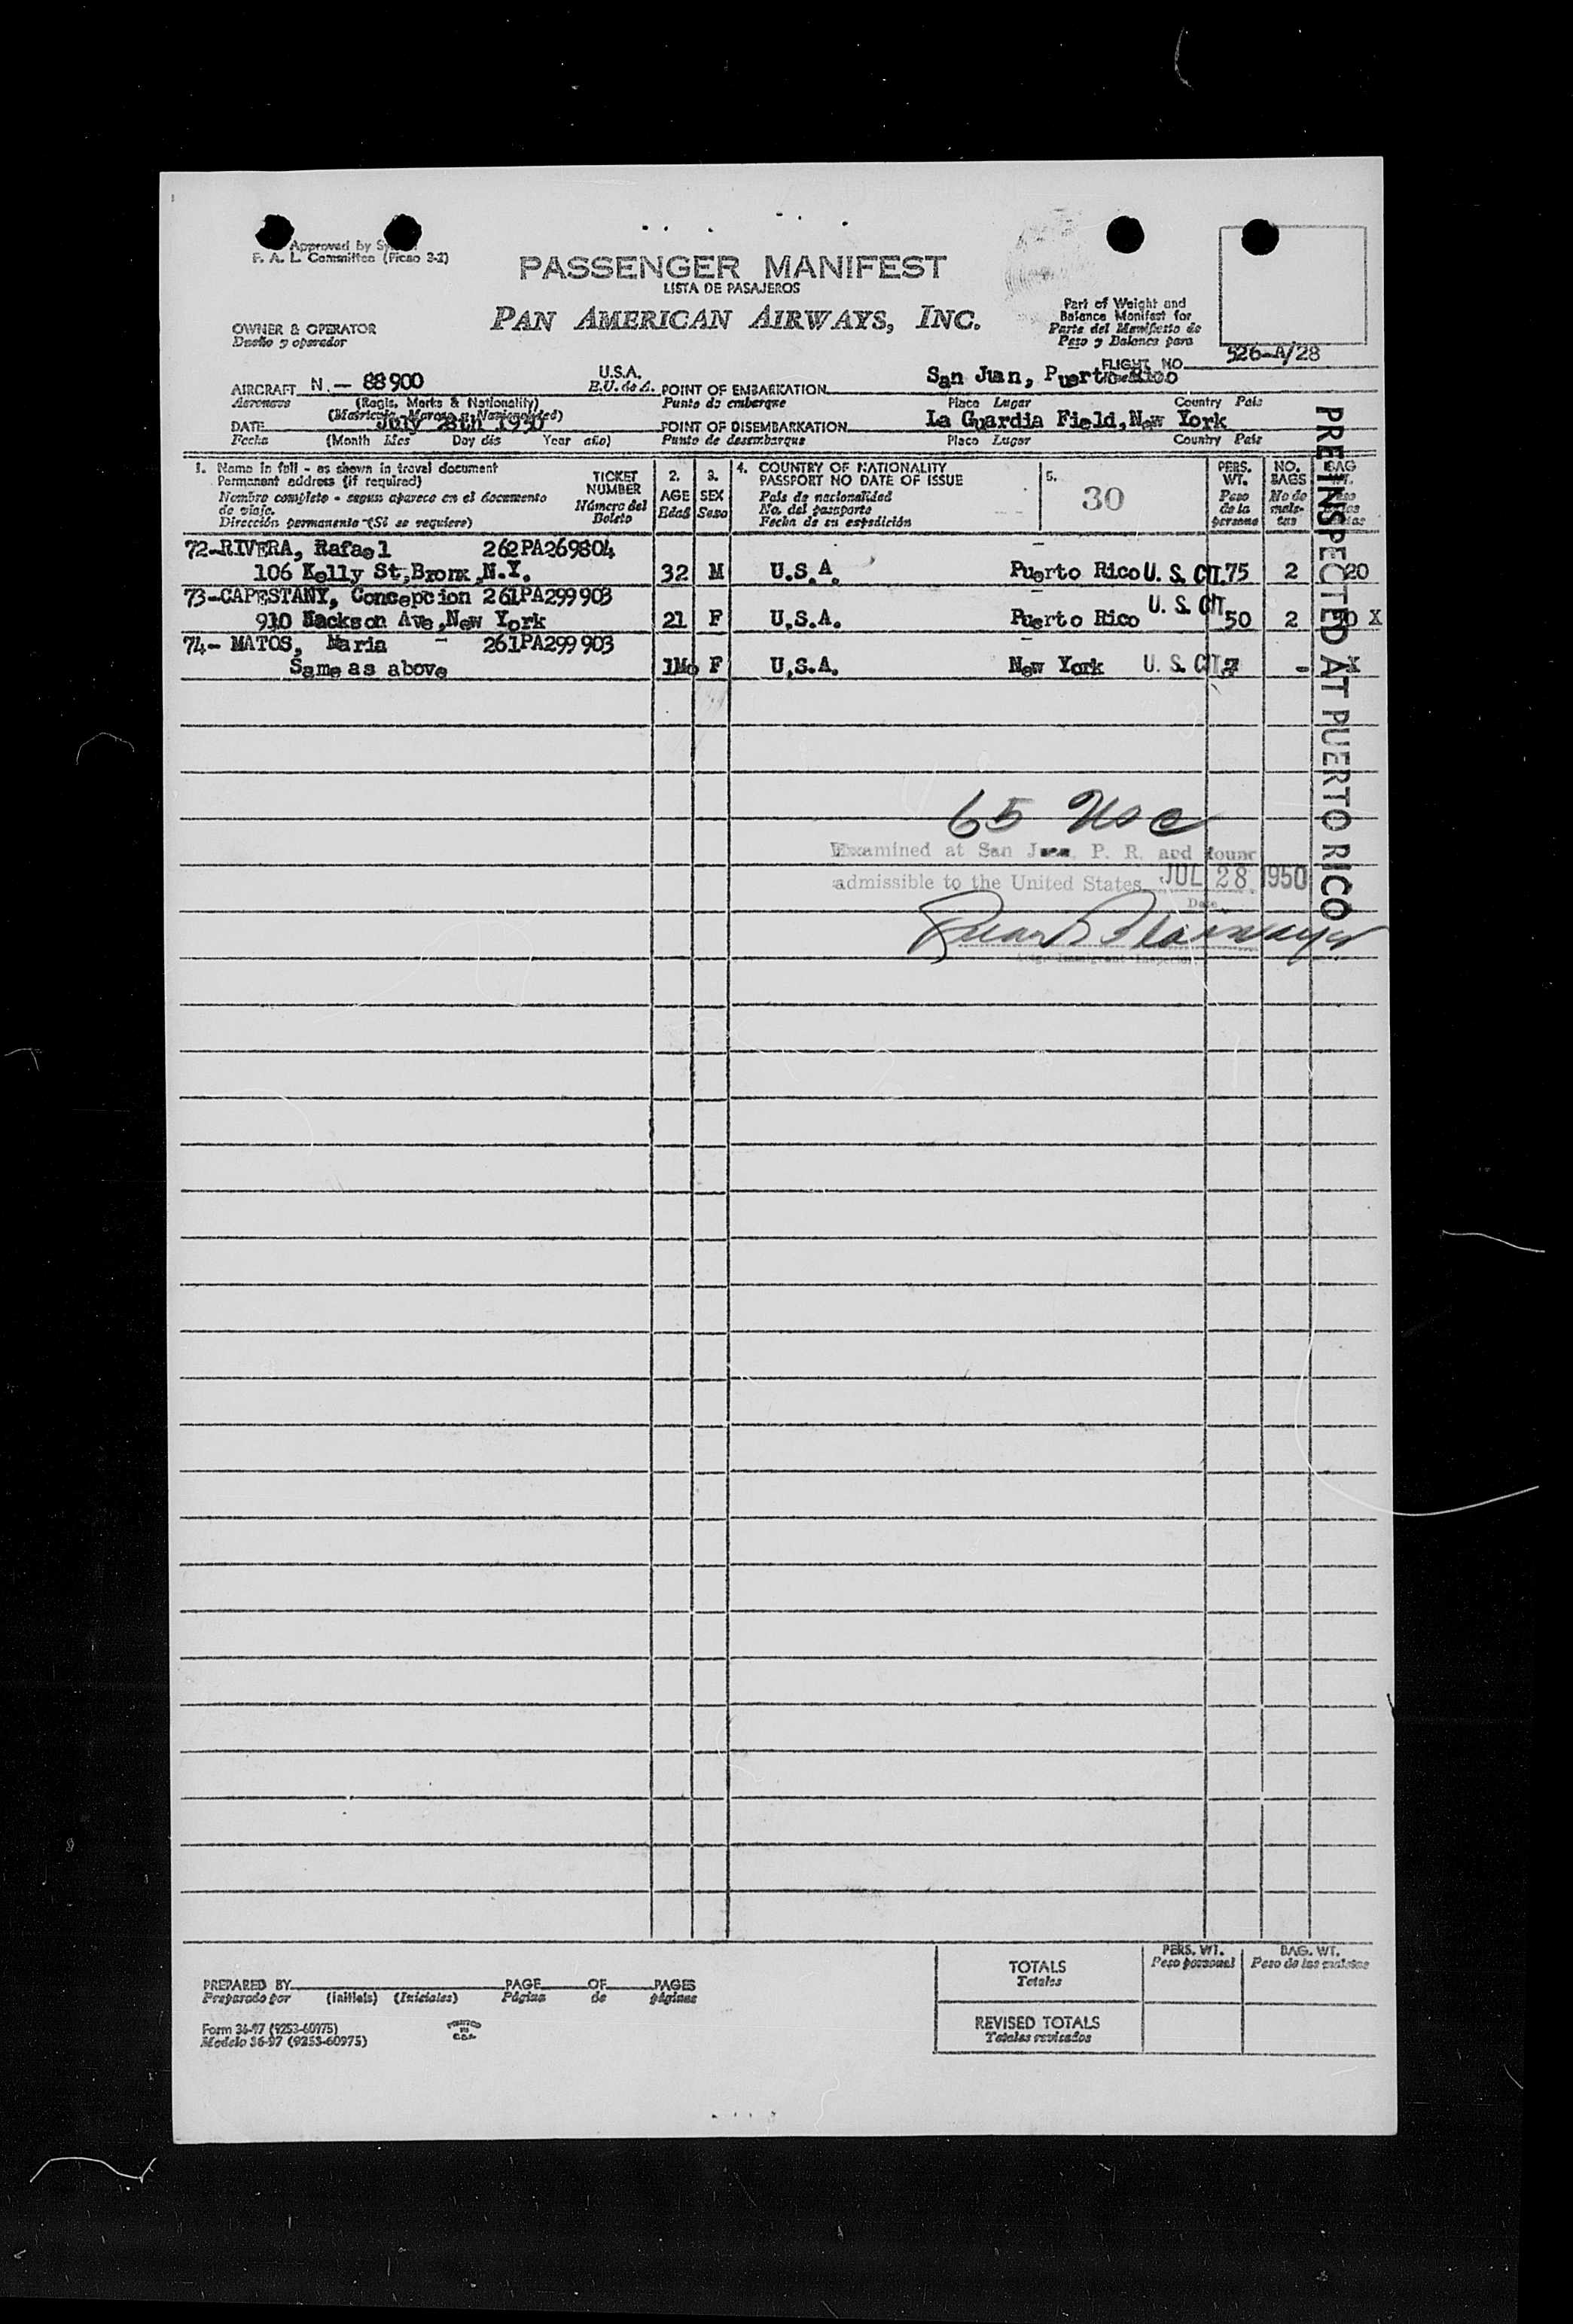 Approved by
F. A. L. Committee (Picao 3-2)
PASSENGER MANIFEST
LISTA DE PASAJEROS
PAN AMERICAN AIRWAYS, INC.
Part of Weight and
Balance Manifest for
Parte del Manifiesto de
Peso y Balance para
OWNER & OPERATOR
Dueño y operador
FLIGHT NO. 526-A/28
AIRCRAFT N.- 88900 U.S.A. POINT OF EMBARKATION San Juan, Puerto Rico
Aeronave (Regis. Marks & Nationality) E.U. de A. Punto de embarque Place Lugar Country Pais
(Matricula, Marcas y Nacionalidad)
DATE July 28th 1950 POINT OF DISEMBARKATION La Guardia Field, New York
Fecha (Month Mes Day dia Year año) Punto de desembarque Place Lugar Country Pais
1. Name in full - as shown in travel document
Permanent address (if required)
Nombre completo - segun aparece en el documento
de viaje.
Dirección permanente - (Si se requiere)
TICKET
NUMBER
Número del
Boleto
2.
AGE
Edad
3.
SEX
Sexo
4. COUNTRY OF NATIONALITY
PASSPORT NO DATE OF ISSUE
Pais de nacionalidad
No. del pasaporte
Fecha de su expedición
5.
30
PERS.
WT.
Peso
de la
persona
NO.
BAGS
No de
male-
tas
BAG
WT.
PREINSPECTED AT PUERTO RICO
72-RIVERA, Rafael 262PA269804
106 Kelly St, Bronx, N.Y. 32 M U.S.A. Puerto Rico U. S. CIT. 75 2 20
73-CAPESTANY, Concepcion 261PA299903
910 Jackson Ave, New York 21 F U.S.A. Puerto Rico U. S. CIT 50 2 X
74- MATOS, Maria - 261PA299903
Same as above 1Mo F U.S.A. New York U. S. CIT. - X
65 USC
Examined at San Juan, P. R. and found
admissible to the United States JUL 28 1950
Date
Immigrant Inspector
PREPARED BY PAGE OF PAGES
Preparado por (initials) (Iniciales) Página de páginas
Form 36-97 (9253-60975)
Modelo 36-97 (9253-60975)
PRINTED
IN
U.S.A.
PERS. WT.
Peso personal
BAG. WT.
Peso de las maletas
TOTALS
Totales
REVISED TOTALS
Totales revisados